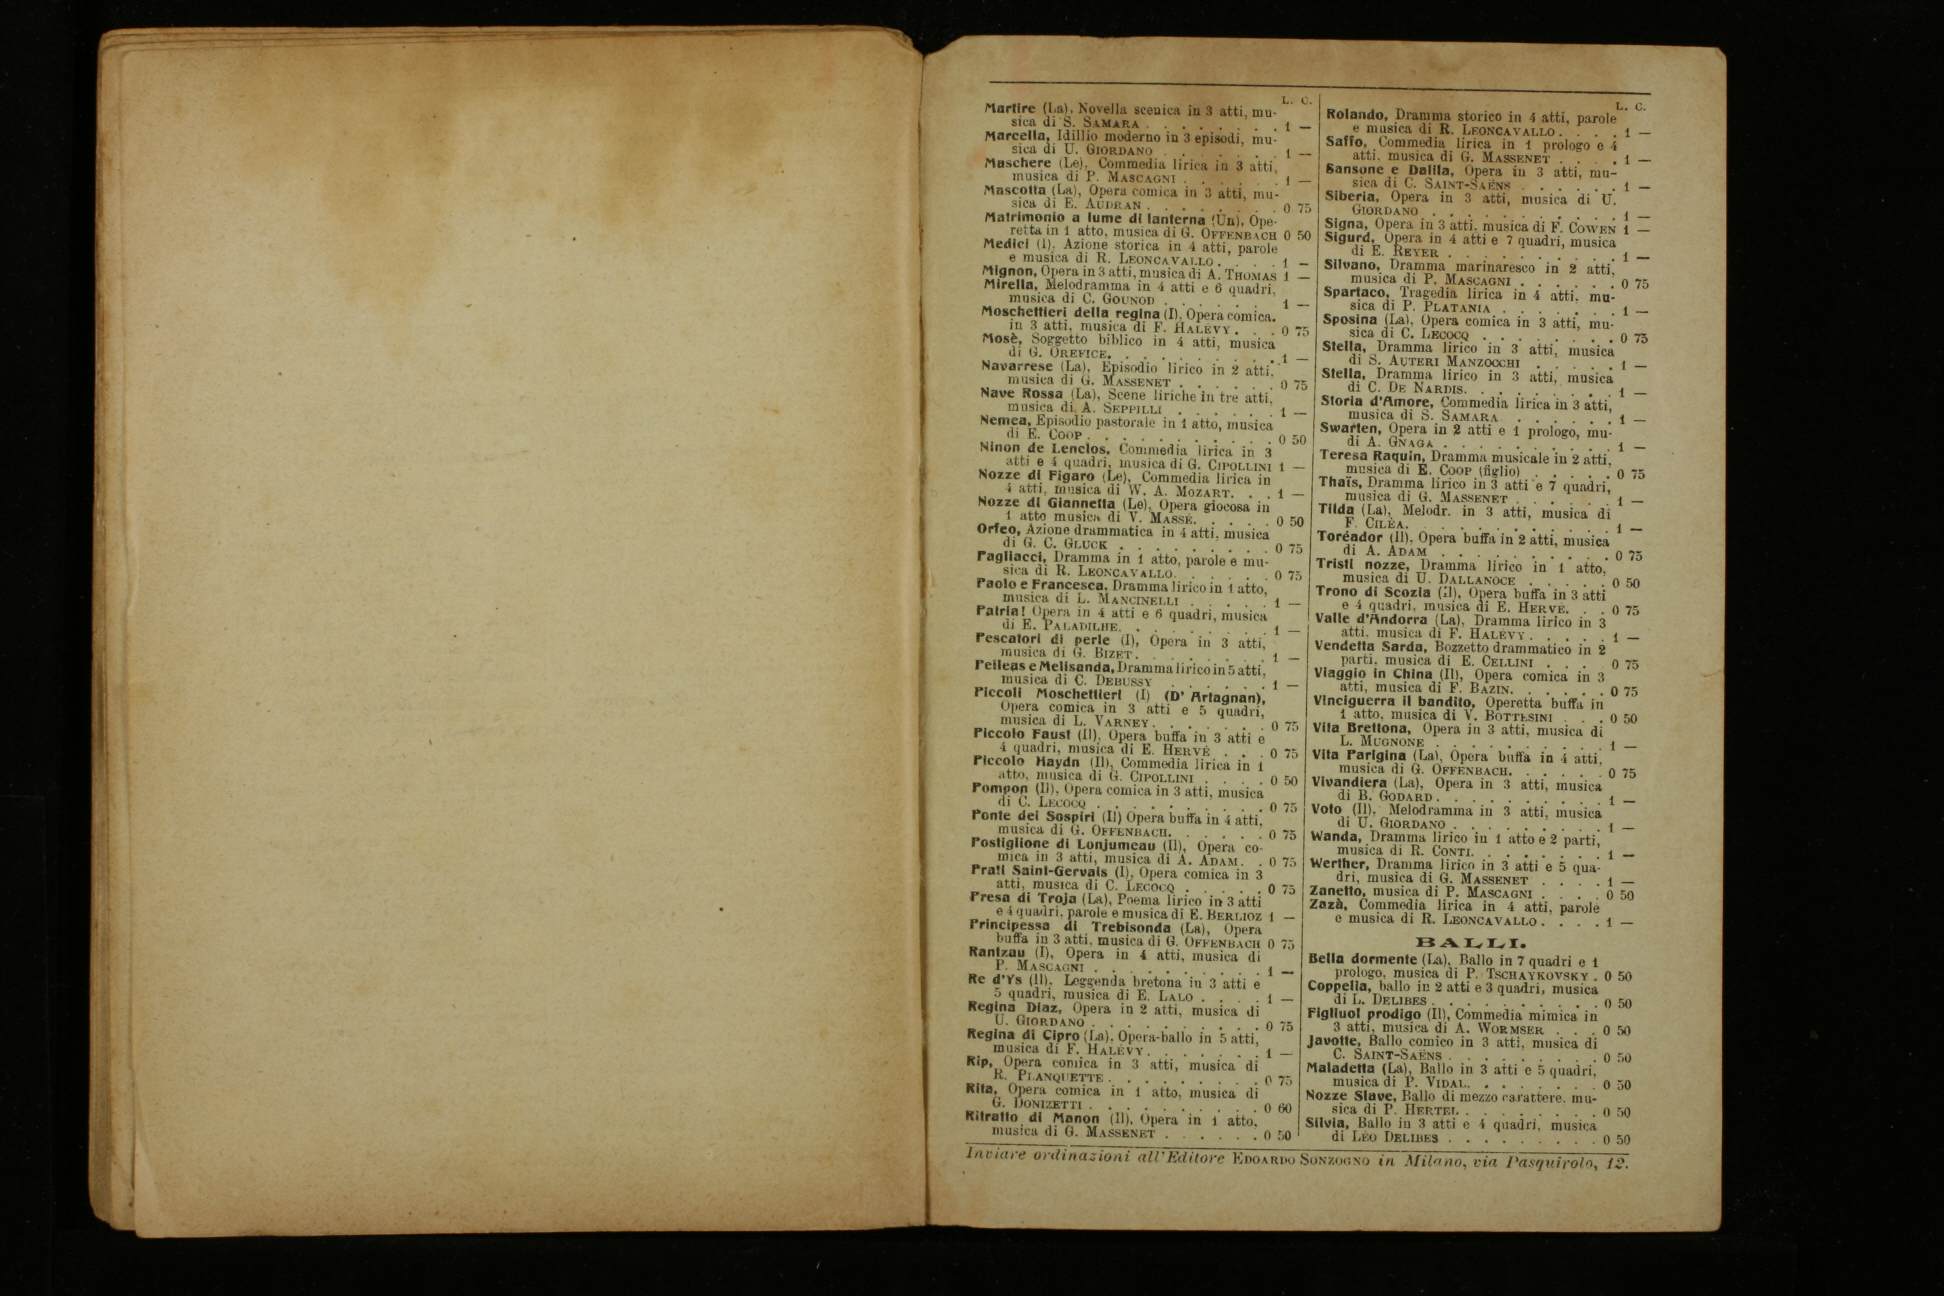 L. C.
Martire (La), Novella scenica in 3 atti, mu-
sica di S. SAMARA . . . . . . . . 1 —
Marcella, Idillio moderno in 3 episodi, mu-
sica di U. GIORDANO . . . . . . . 1 —
Maschere (Le), Commedia lirica in 3 atti,
musica di P. MASCAGNI . . . . . . 1 —
Mascotta (La), Opera comica in 3 atti, mu-
sica di E. AUDRAN . . . . . . . . 0 75
Matrimonio a lume di lanterna (Un), Ope-
retta in 1 atto, musica di G. OFFENBACH 0 50
Medici (I), Azione storica in 4 atti, parole
e musica di R. LEONCAVALLO . . . . 1 —
Mignon, Opera in 3 atti, musica di A. THOMAS 1 —
Mirella, Melodramma in 4 atti e 6 quadri,
musica di C. GOUNOD . . . . . . . 1 —
Moschettieri della regina (I), Opera comica.
in 3 atti, musica di F. HALÉVY . . . 0 75
Mosè, Soggetto biblico in 4 atti, musica
di G. OREFICE. . . . . . . . . . . 1 —
Navarrese (La), Episodio lirico in 2 atti,
musica di G. MASSENET . . . . . . 0 75
Nave Rossa (La), Scene liriche in tre atti,
musica di A. SEPPILLI . . . . . . 1 —
Nemea, Episodio pastorale in 1 atto, musica
di E. COOP . . . . . . . . . . . 0 50
Ninon de Lenclos, Commedia lirica in 3
atti e 4 quadri, musica di G. CIPOLLINI 1 —
Nozze di Figaro (Le), Commedia lirica in
4 atti, musica di W. A. MOZART. . . 1 —
Nozze di Giannetta (Le), Opera giocosa in
1 atto musica di V. MASSÉ. . . . . 0 50
Orfeo, Azione drammatica in 4 atti, musica
di G. C. GLUCK . . . . . . . . . 0 75
Pagliacci, Dramma in 1 atto, parole e mu-
sica di R. LEONCAVALLO. . . . . . 0 75
Paolo e Francesca, Dramma lirico in 1 atto,
musica di L. MANCINELLI . . . . . 1 —
Patria! Opera in 4 atti e 6 quadri, musica
di E. PALADILHE. . . . . . . . . 1 —
Pescatori di perle (I), Opera in 3 atti,
musica di G. BIZET. . . . . . . . 1 —
Pelleas e Melisanda, Dramma lirico in 5 atti,
musica di C. DEBUSSY . . . . . . 1 —
Piccoli Moschettieri (I) (D' Artagnan),
Opera comica in 3 atti e 5 quadri,
musica di L. VARNEY . . . . . . . 0 75
Piccolo Faust (Il), Opera buffa in 3 atti e
4 quadri, musica di E. HERVÉ . . . 0 75
Piccolo Haydn (Il), Commedia lirica in 1
atto, musica di G. CIPOLLINI . . . . 0 50
Pompon (Il), Opera comica in 3 atti, musica
di C. LECOCQ . . . . . . . . . . 0 75
Ponte dei Sospiri (Il) Opera buffa in 4 atti,
musica di G. OFFENBACH. . . . . . 0 75
Postiglione di Lonjumeau (Il), Opera co-
mica in 3 atti, musica di A. ADAM. . 0 75
Prati Saint-Gervais (I), Opera comica in 3
atti, musica di C. LECOCQ . . . . . 0 75
Presa di Troja (La), Poema lirico in 3 atti
e 4 quadri, parole e musica di E. BERLIOZ 1 —
Principessa di Trebisonda (La), Opera
buffa in 3 atti, musica di G. OFFENBACH 0 75
Rantzau (I), Opera in 4 atti, musica di
P. MASCAGNI . . . . . . . . . . 1 —
Re d'Ys (Il), Leggenda bretona in 3 atti e
5 quadri, musica di E. LALO . . . . 1 —
Regina Diaz, Opera in 2 atti, musica di
U. GIORDANO . . . . . . . . . . 0 75
Regina di Cipro (La), Opera-ballo in 5 atti,
musica di F. HALÉVY . . . . . . . 1 —
Rip, Opera comica in 3 atti, musica di
R. PLANQUETTE . . . . . . . . . 0 75
Rita, Opera comica in 1 atto, musica di
G. DONIZETTI . . . . . . . . . . 0 60
Ritratto di Manon (Il), Opera in 1 atto,
musica di G. MASSENET . . . . . . 0 50
L. C.
Rolando, Dramma storico in 4 atti, parole
e musica di R. LEONCAVALLO . . . . 1 —
Saffo, Commedia lirica in 1 prologo e 4
atti, musica di G. MASSENET . . . . 1 —
Sansone e Dalila, Opera in 3 atti, mu-
sica di C. SAINT-SAËNS . . . . . . 1 —
Siberia, Opera in 3 atti, musica di U.
GIORDANO . . . . . . . . . . . 1 —
Signa, Opera in 3 atti, musica di F. COWEN 1 —
Sigurd, Opera in 4 atti e 7 quadri, musica
di E. REYER . . . . . . . . . . 1 —
Silvano, Dramma marinaresco in 2 atti,
musica di P. MASCAGNI . . . . . . 0 75
Spartaco, Tragedia lirica in 4 atti, mu-
sica di P. PLATANIA . . . . . . . 1 —
Sposina (La), Opera comica in 3 atti, mu-
sica di C. LECOCQ . . . . . . . . 0 75
Stella, Dramma lirico in 3 atti, musica
di S. AUTERI MANZOCCHI . . . . . 1 —
Stella, Dramma lirico in 3 atti, musica
di C. DE NARDIS. . . . . . . . . 1 —
Storia d'Amore, Commedia lirica in 3 atti,
musica di S. SAMARA . . . . . . . 1 —
Swarten, Opera in 2 atti e 1 prologo, mu-
di A. GNAGA . . . . . . . . . . 1 —
Teresa Raquin, Dramma musicale in 2 atti,
musica di E. COOP (figlio) . . . . . 0 75
Thaïs, Dramma lirico in 3 atti e 7 quadri,
musica di G. MASSENET . . . . . . 1 —
Tilda (La), Melodr. in 3 atti, musica di
F. CILÉA. . . . . . . . . . . . 1 —
Toréador (Il), Opera buffa in 2 atti, musica
di A. ADAM . . . . . . . . . . 0 75
Tristi nozze, Dramma lirico in 1 atto,
musica di U. DALLANOCE . . . . . 0 50
Trono di Scozia (Il), Opera buffa in 3 atti
e 4 quadri, musica di E. HERVÉ. . . 0 75
Valle d'Andorra (La), Dramma lirico in 3
atti, musica di F. HALÉVY . . . . . 1 —
Vendetta Sarda, Bozzetto drammatico in 2
parti, musica di E. CELLINI . . . 0 75
Viaggio in China (Il), Opera comica in 3
atti, musica di F. BAZIN. . . . . . 0 75
Vinciguerra il bandito, Operetta buffa in
1 atto, musica di V. BOTTESINI . . . 0 50
Vita Brettona, Opera in 3 atti, musica di
L. MUGNONE . . . . . . . . . . 1 —
Vita Parigina (La), Opera buffa in 4 atti,
musica di G. OFFENBACH. . . . . . 0 75
Vivandiera (La), Opera in 3 atti, musica
di B. GODARD . . . . . . . . . . 1 —
Voto (Il), Melodramma in 3 atti, musica
di U. GIORDANO . . . . . . . . . 1 —
Wanda, Dramma lirico in 1 atto e 2 parti,
musica di R. CONTI. . . . . . . . 1 —
Werther, Dramma lirico in 3 atti e 5 qua-
dri, musica di G. MASSENET . . . . 1 —
Zanetto, musica di P. MASCAGNI . . . . 0 50
Zazà, Commedia lirica in 4 atti, parole
e musica di R. LEONCAVALLO . . . . 1 —
BALLI.
Bella dormente (La), Ballo in 7 quadri e 1
prologo, musica di P. TSCHAYKOVSKY . 0 50
Coppelia, ballo in 2 atti e 3 quadri, musica
di L. DELIBES . . . . . . . . . . 0 50
Figliuol prodigo (Il), Commedia mimica in
3 atti, musica di A. WORMSER . . . 0 50
Javotte, Ballo comico in 3 atti, musica di
C. SAINT-SAËNS . . . . . . . . . 0 50
Maladetta (La), Ballo in 3 atti e 5 quadri,
musica di P. VIDAL. . . . . . . . 0 50
Nozze Slave, Ballo di mezzo carattere, mu-
sica di P. HERTEL . . . . . . . . 0 50
Silvia, Ballo in 3 atti e 4 quadri, musica
di LÉO DELIBES . . . . . . . . . 0 50
Inviare ordinazioni all'Editore EDOARDO SONZOGNO in Milano, via Pasquirolo, 12.